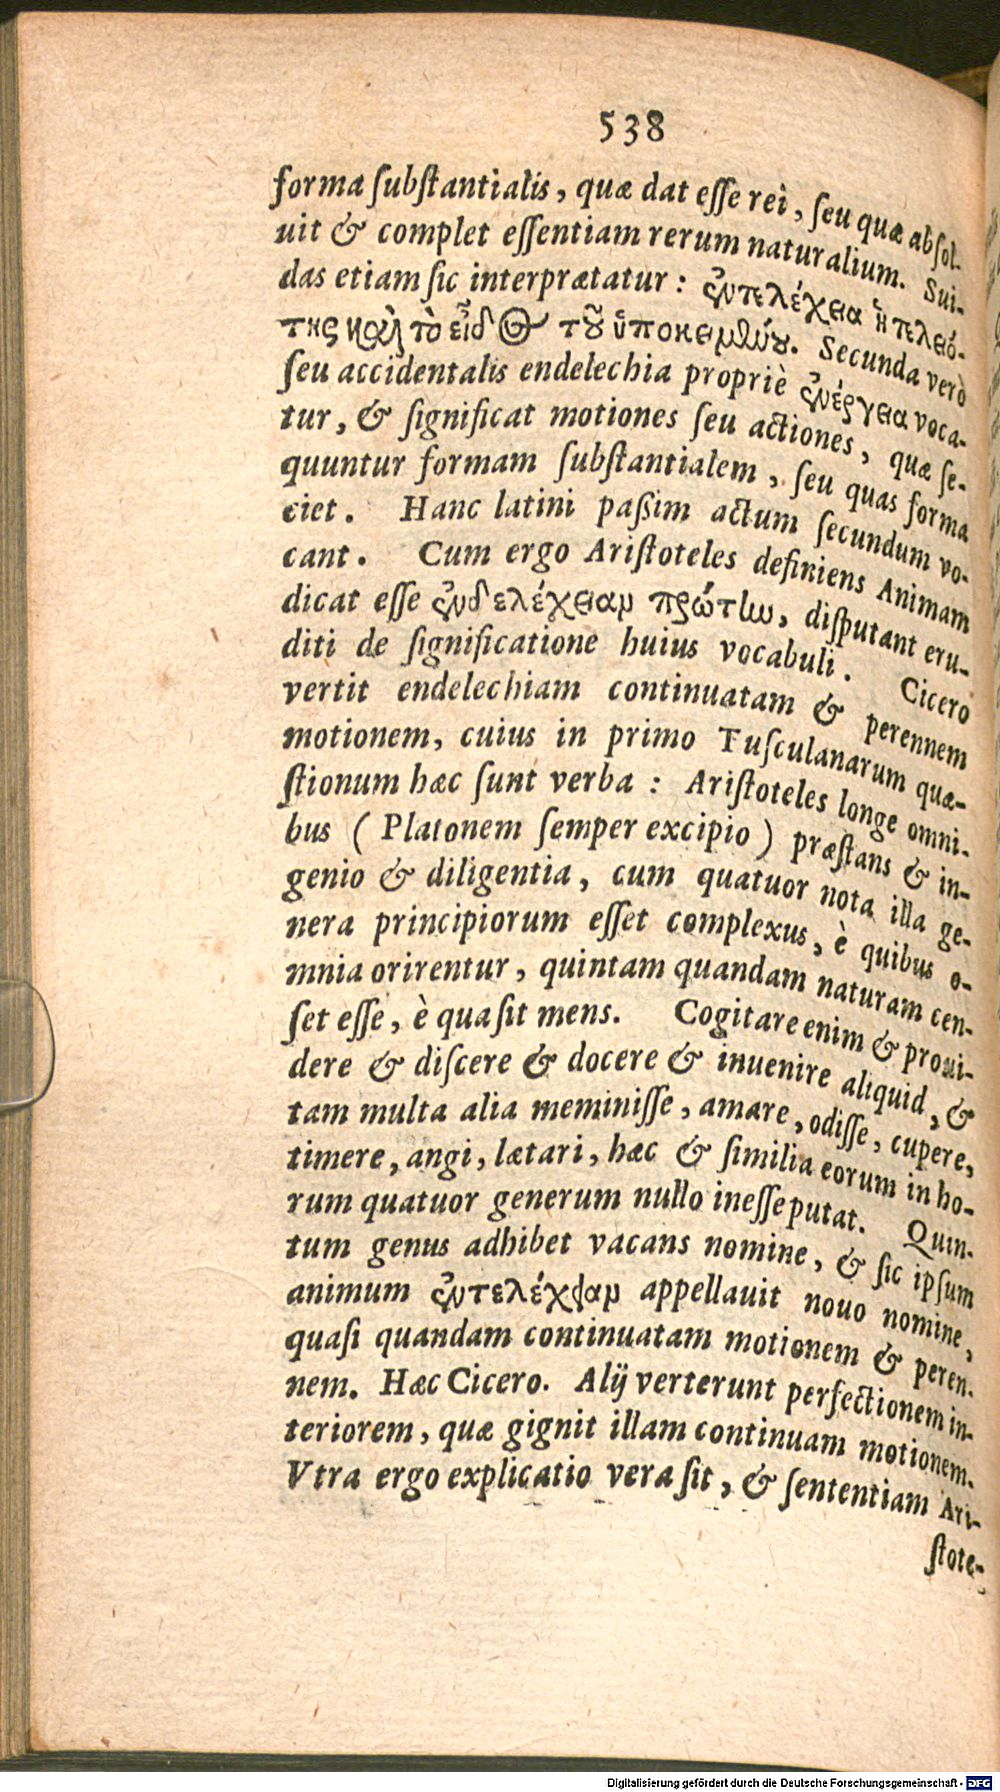 538
forma ſubſtantialis, quæ dat eſſe rei, ſeu quæ abſol-
uit & complet eſſentiam rerum naturalium. Sui-
das etiam ſic interprætatur: ἐντελέχεια ἢ τελειό-
της καὶ τὸ εἶδος τοῦ ὑποκειμένου. Secunda verò
ſeu accidentalis endelechia propriè ἐνέργεια voca-
tur, & ſignificat motiones ſeu actiones, quæ ſe-
quuntur formam ſubſtantialem, ſeu quas forma
ciet. Hanc latini paßim actum ſecundum vo-
cant. Cum ergo Ariſtoteles definiens Animam
dicat eſſe ἐνδελέχειαν πρώτην, diſputant eru-
diti de ſignificatione huius vocabuli. Cicero
vertit endelechiam continuatam & perennem
motionem, cuius in primo Tuſculanarum quæ-
ſtionum hæc ſunt verba: Ariſtoteles longe omni-
bus (Platonem ſemper excipio) præſtans & in-
genio & diligentia, cum quatuor nota illa ge-
nera principiorum eſſet complexus, è quibus o-
mnia orirentur, quintam quandam naturam cen-
ſet eſſe, è qua ſit mens. Cogitare enim & proui-
dere & diſcere & docere & inuenire aliquid, &
tam multa alia meminiſſe, amare, odiſſe, cupere,
timere, angi, lætari, hæc & ſimilia eorum in ho-
rum quatuor generum nullo ineſſe putat. Quin-
tum genus adhibet vacans nomine, & ſic ipſum
animum ἐντελέχειαν appellauit nouo nomine,
quaſi quandam continuatam motionem & peren-
nem. Hæc Cicero. Alij verterunt perfectionem in-
teriorem, quæ gignit illam continuam motionem.
Vtra ergo explicatio vera ſit, & ſententiam Ari-
ſtote-
Digitalisierung gefördert durch die Deutsche Forschungsgemeinschaft - DFG